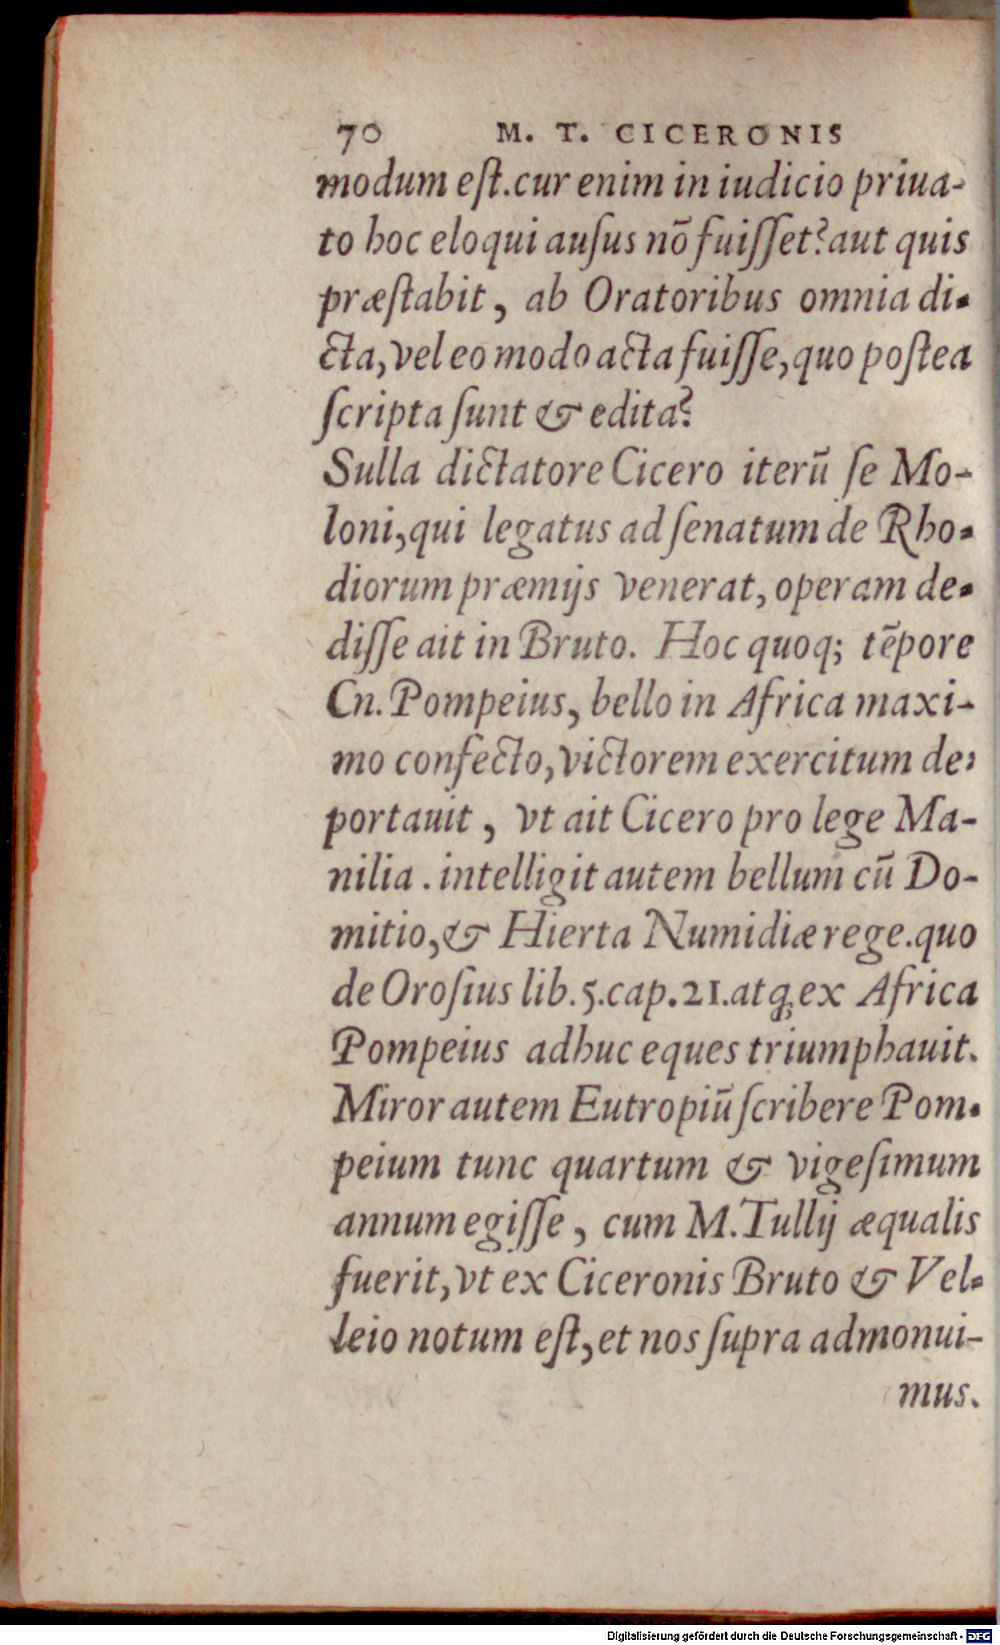 70 M. T. CICERONIS
modum eſt.cur enim in iudicio priua-
to hoc eloqui auſus nõ fuiſſet?aut quis
præſtabit, ab Oratoribus omnia di-
cta, vel eo modo acta fuiſſe, quo poſtea
ſcripta ſunt & edita?
Sulla dictatore Cicero iterũ ſe Mo-
loni, qui legatus ad ſenatum de Rho-
diorum præmijs venerat, operam de-
diſſe ait in Bruto. Hoc quoq; tẽpore
Cn. Pompeius, bello in Africa maxi-
mo confecto, victorem exercitum de-
portauit, vt ait Cicero pro lege Ma-
nilia. intelligit autem bellum cũ Do-
mitio, & Hierta Numidiæ rege. quo
de Oroſius lib.5.cap.21.atq; ex Africa
Pompeius adhuc eques triumphauit.
Miror autem Eutropiũ ſcribere Pom-
peium tunc quartum & vigeſimum
annum egiſſe, cum M. Tullij æqualis
fuerit, vt ex Ciceronis Bruto & Vel-
leio notum eſt, et nos ſupra admonui-
mus.
Digitalisierung gefördert durch die Deutsche Forschungsgemeinschaft - DFG